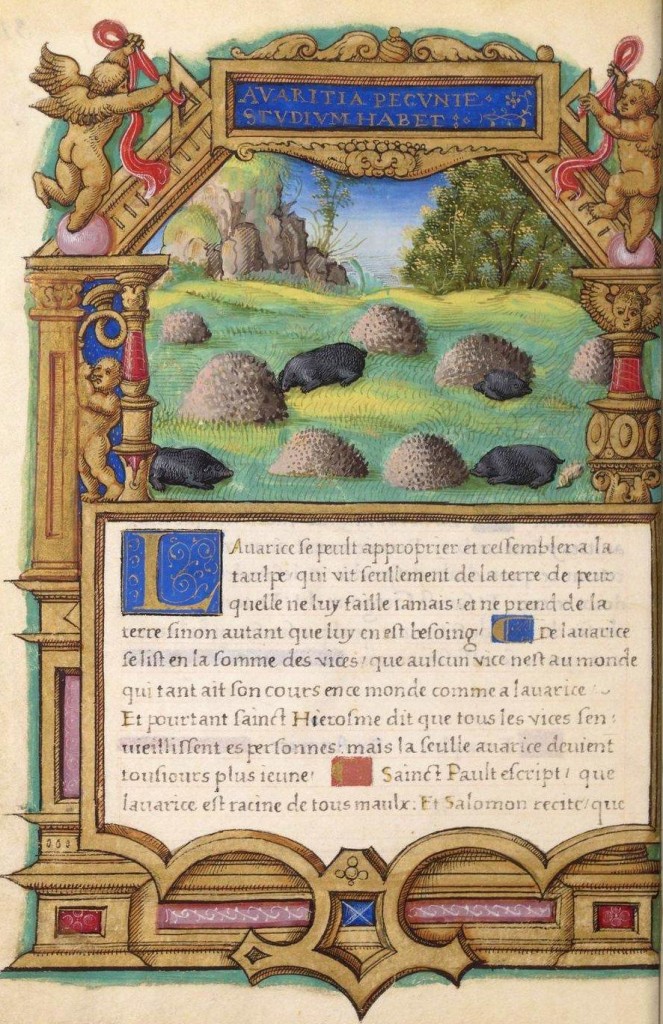 AVARITIA PECVNIE
STVDIVM HABET
LAvarice se peult approprier et ressembler a la
taulpe / qui vit seullement de la terre de peur
quelle ne luy faille iamais / et ne prend de la
terre sinon autant que luy en est besoing / De lavarice
se list en la somme des vices / que aulcun vice nest au monde
qui tant ait son cours en ce monde comme a lavarice
Et pourtant sainct Hierosme dit que tous les vices sen:
vieillissent es personnes: mais la seulle avarice devient
tousiours plus ieune / Sainct Pault escript / que
lavarice est racine de tous maulx: Et Salomon recite / que